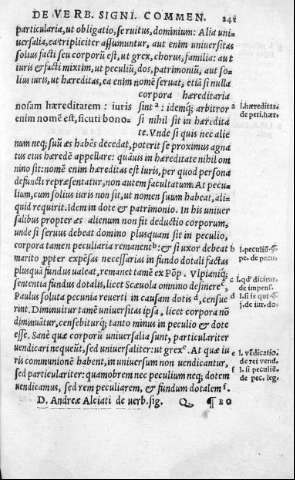 DE VERB. SIGNI. COMMEN. 241
particularia, ut obligatio, seruitus, dominium: Alia uni
uersalia, ea tripliciter assumuntur, aut enim uniuersitas
solius facti seu corporū est, ut grex, chorus, familia: aut
iuris & facti mixtim, ut peculiū, dos, patrimoniū, aut so
lius iuris, ut hæreditas, ea enim nomē seruat, etiā si nulla
corpora hæreditaria
nosam hæreditarem : iuris sintᵃ: idemq; arbitror
enim nomē est, sicuti bono si nihil sit in hæredita
te. Vnde si quis nec alie
num neq; suū æs habēs decedat, poterit se proximus agna
tus eius hærede appellare: quāuis in hæreditate nihil om
nino sit: nomē enim hæreditas est iuris, per quod persona
defuncti repræsentatur, non autem facultatum. At pecu
lium, cum solius iuris non sit, ut nomen suum habeat, ali
quid requirit. idem in dote & patrimonio. In his uniuer
salibus propter æs alienum non fit deductio corporum,
unde si seruus debeat domino plusquam sit in peculio,
corpora tamen peculiaria remanentᵇ: & si uxor debeat
marito ꝓpter expēsas necessarias in fundo dotali factas
plusquā fundus ualeat, remanet tamē ex Pōp. Vlpianiq;
sententia fundus dotalis, licet Scæuola omnino desinereᶜ,
Paulus soluta pecunia reuerti in causam dotisᵈ, censue
rint. Diminuitur tamē uniuersitas ipsa, licet corpora nō
diminuātur, censebiturq; tanto minus in peculio & dote
esse. Sanè quæ corporū uniuersalia sunt, particulariter
uendicari nequeūt, sed uniuersaliter: ut grexᵉ. At quæ iu
ris communionē habent, in uniuersum non uendicantur,
sed particulariter: quamobrem nec peculium neq; dotem
uendicamus, sed rem peculiarem, & fundum dotalemᶠ.
D. Andreæ Alciati de uerb. sig. Q ¶ 20
a l. hæreditas
de peti. hære.
b l. peculiū
de pecu.
c l. qd' dicitur
de impen.
d l. si is qui
de iur. do.
e l. vēdicatio.
de rei vend.
f l. si peculiū.
de pec. leg.